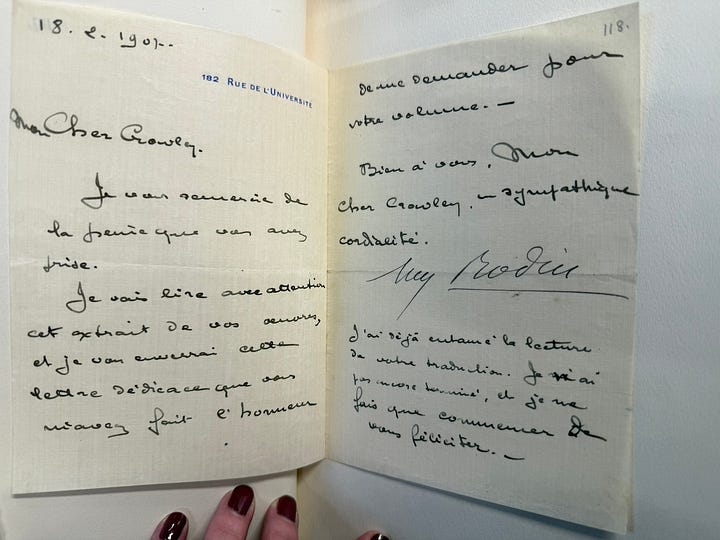 18. 2. 190
182 RUE DE L'UNIVERSITÉ
Mon Cher Crowley.
Je vous remercie de
la peine que vous avez
prise.
Je vais lire avec attention
cet extrait de vos œuvres,
et je vous enverrai cette
lettre dédicace que vous
m'avez fait l'honneur
118.
de me demander pour
votre volume. —
Bien à vous, Mon
cher Crowley, en sympathique
cordialité.
Aug Rodin
J'ai déjà entamé la lecture
de votre traduction. Je n'ai
pas encore terminé, et je ne
fais que commencer de
vous féliciter. —